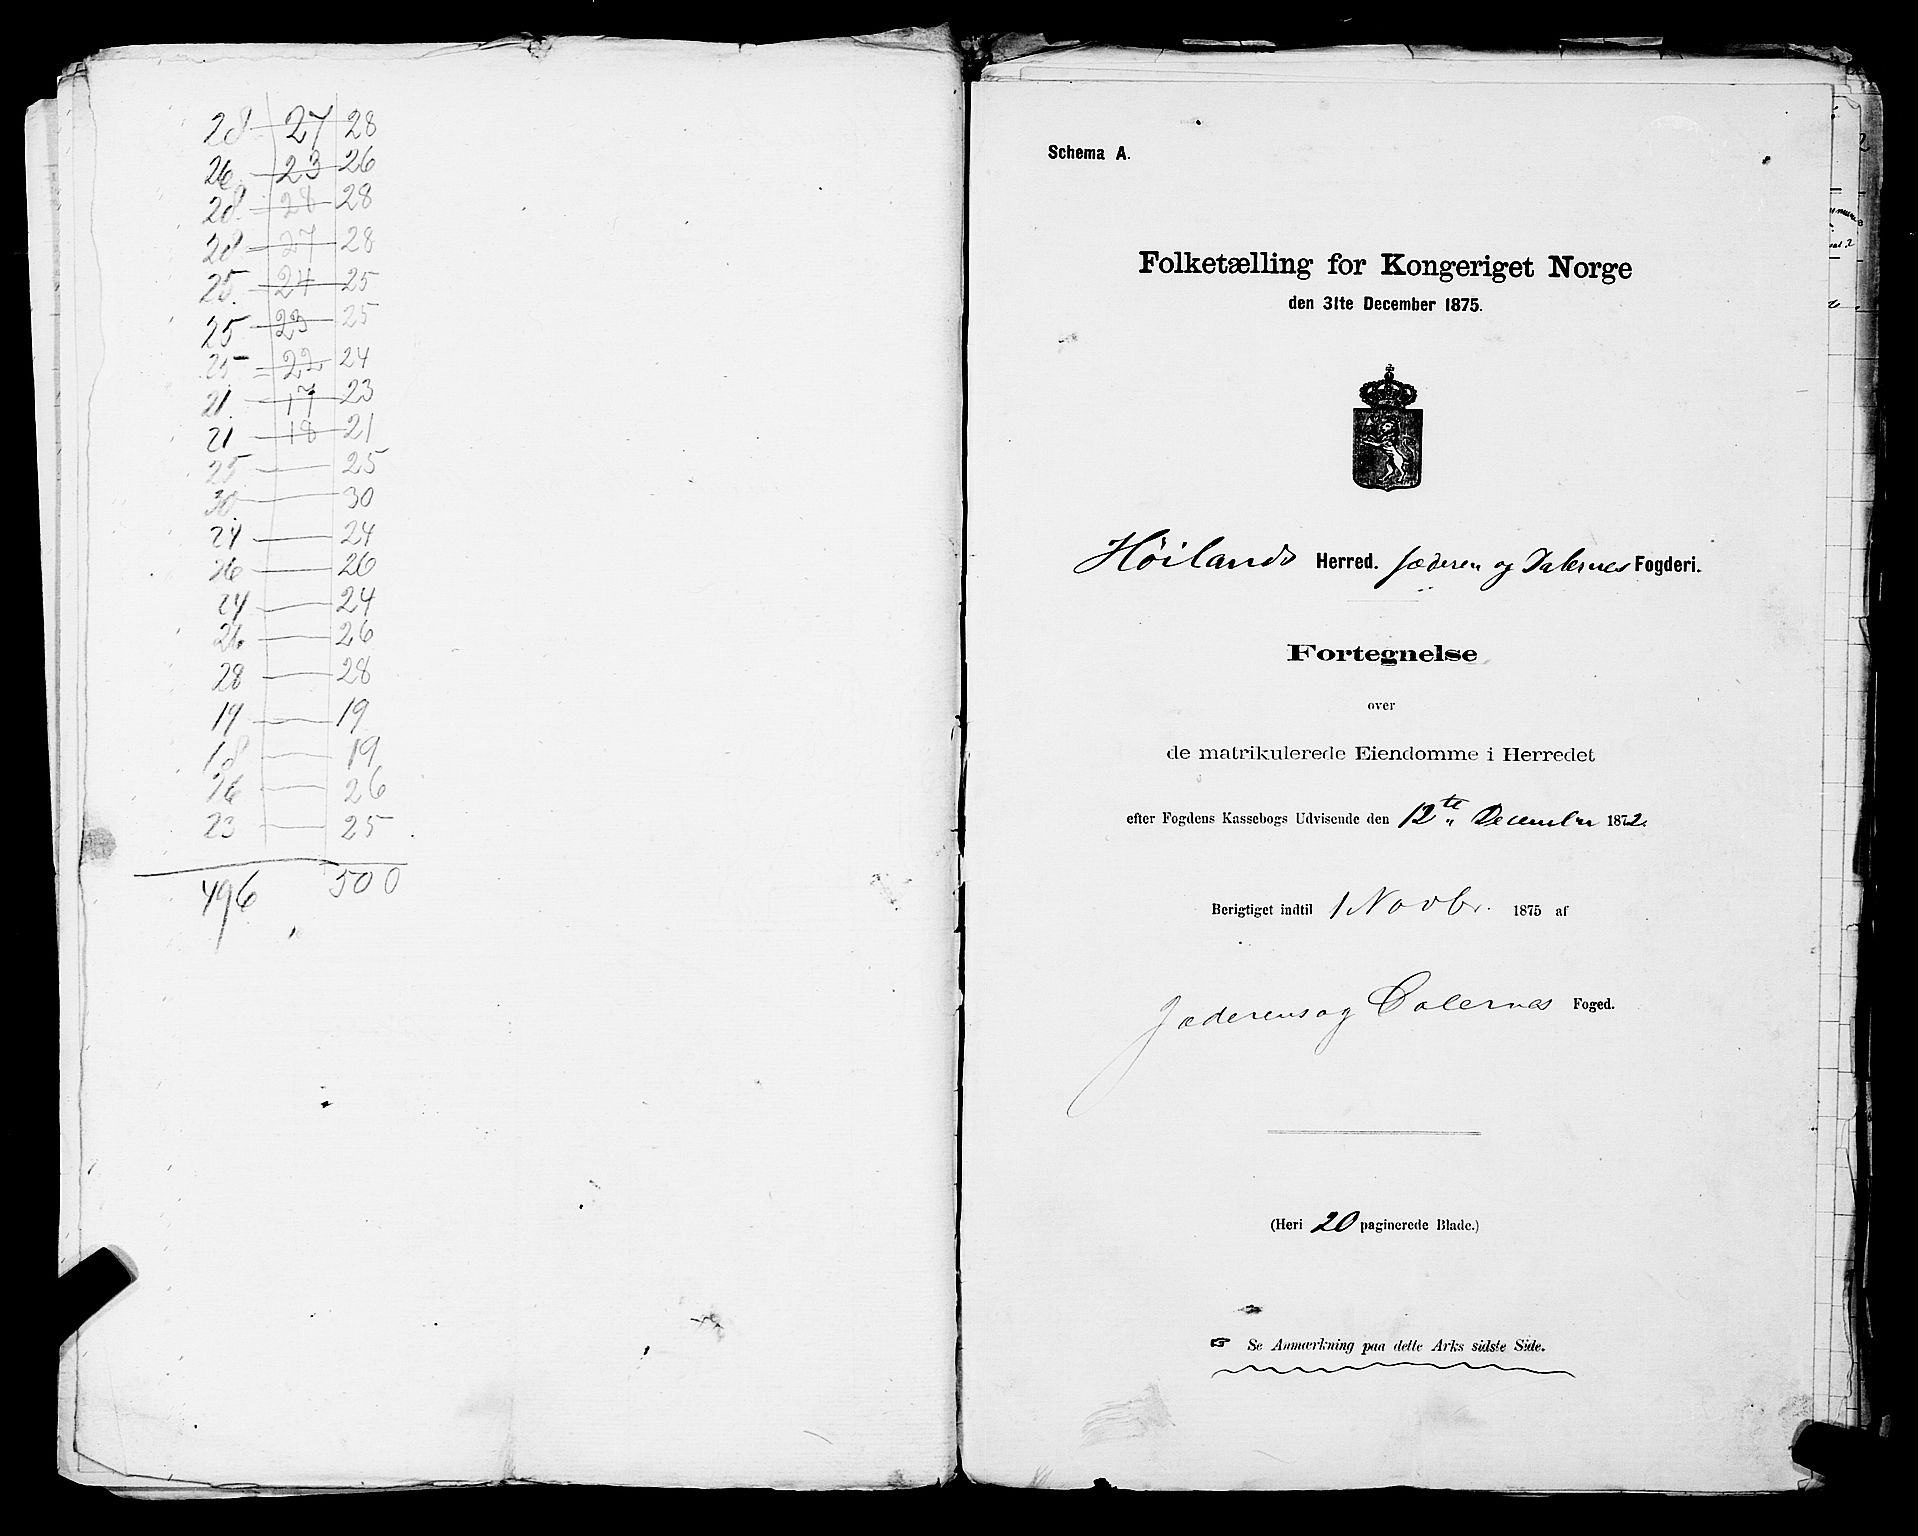 28 27 28
26 23 26
28 28 28
28 27 28
25 24 25
25 23 25
25 22 24
21 17 23
21 18 21
25 — 25
30 — 30
24 — 24
26 — 26
24 — 24
26 — 26
28 — 28
19 — 19
18 — 19
26 — 26
23 — 25
496 500
Schema A.
Folketælling for Kongeriget Norge
den 31te December 1875.
Høilands Herred. Jæderen og Dalernes Fogderi.
Fortegnelse
over
de matrikulerede Eiendomme i Herredet
efter Fogdens Kassebogs Udvisende den 12te December 1872.
Berigtiget indtil 1 Novbr. 1875 af
Jæderens og Dalernes Foged.
(Heri 20 paginerede Blade.)
☞ Se Anmærkning paa dette Arks sidste Side.